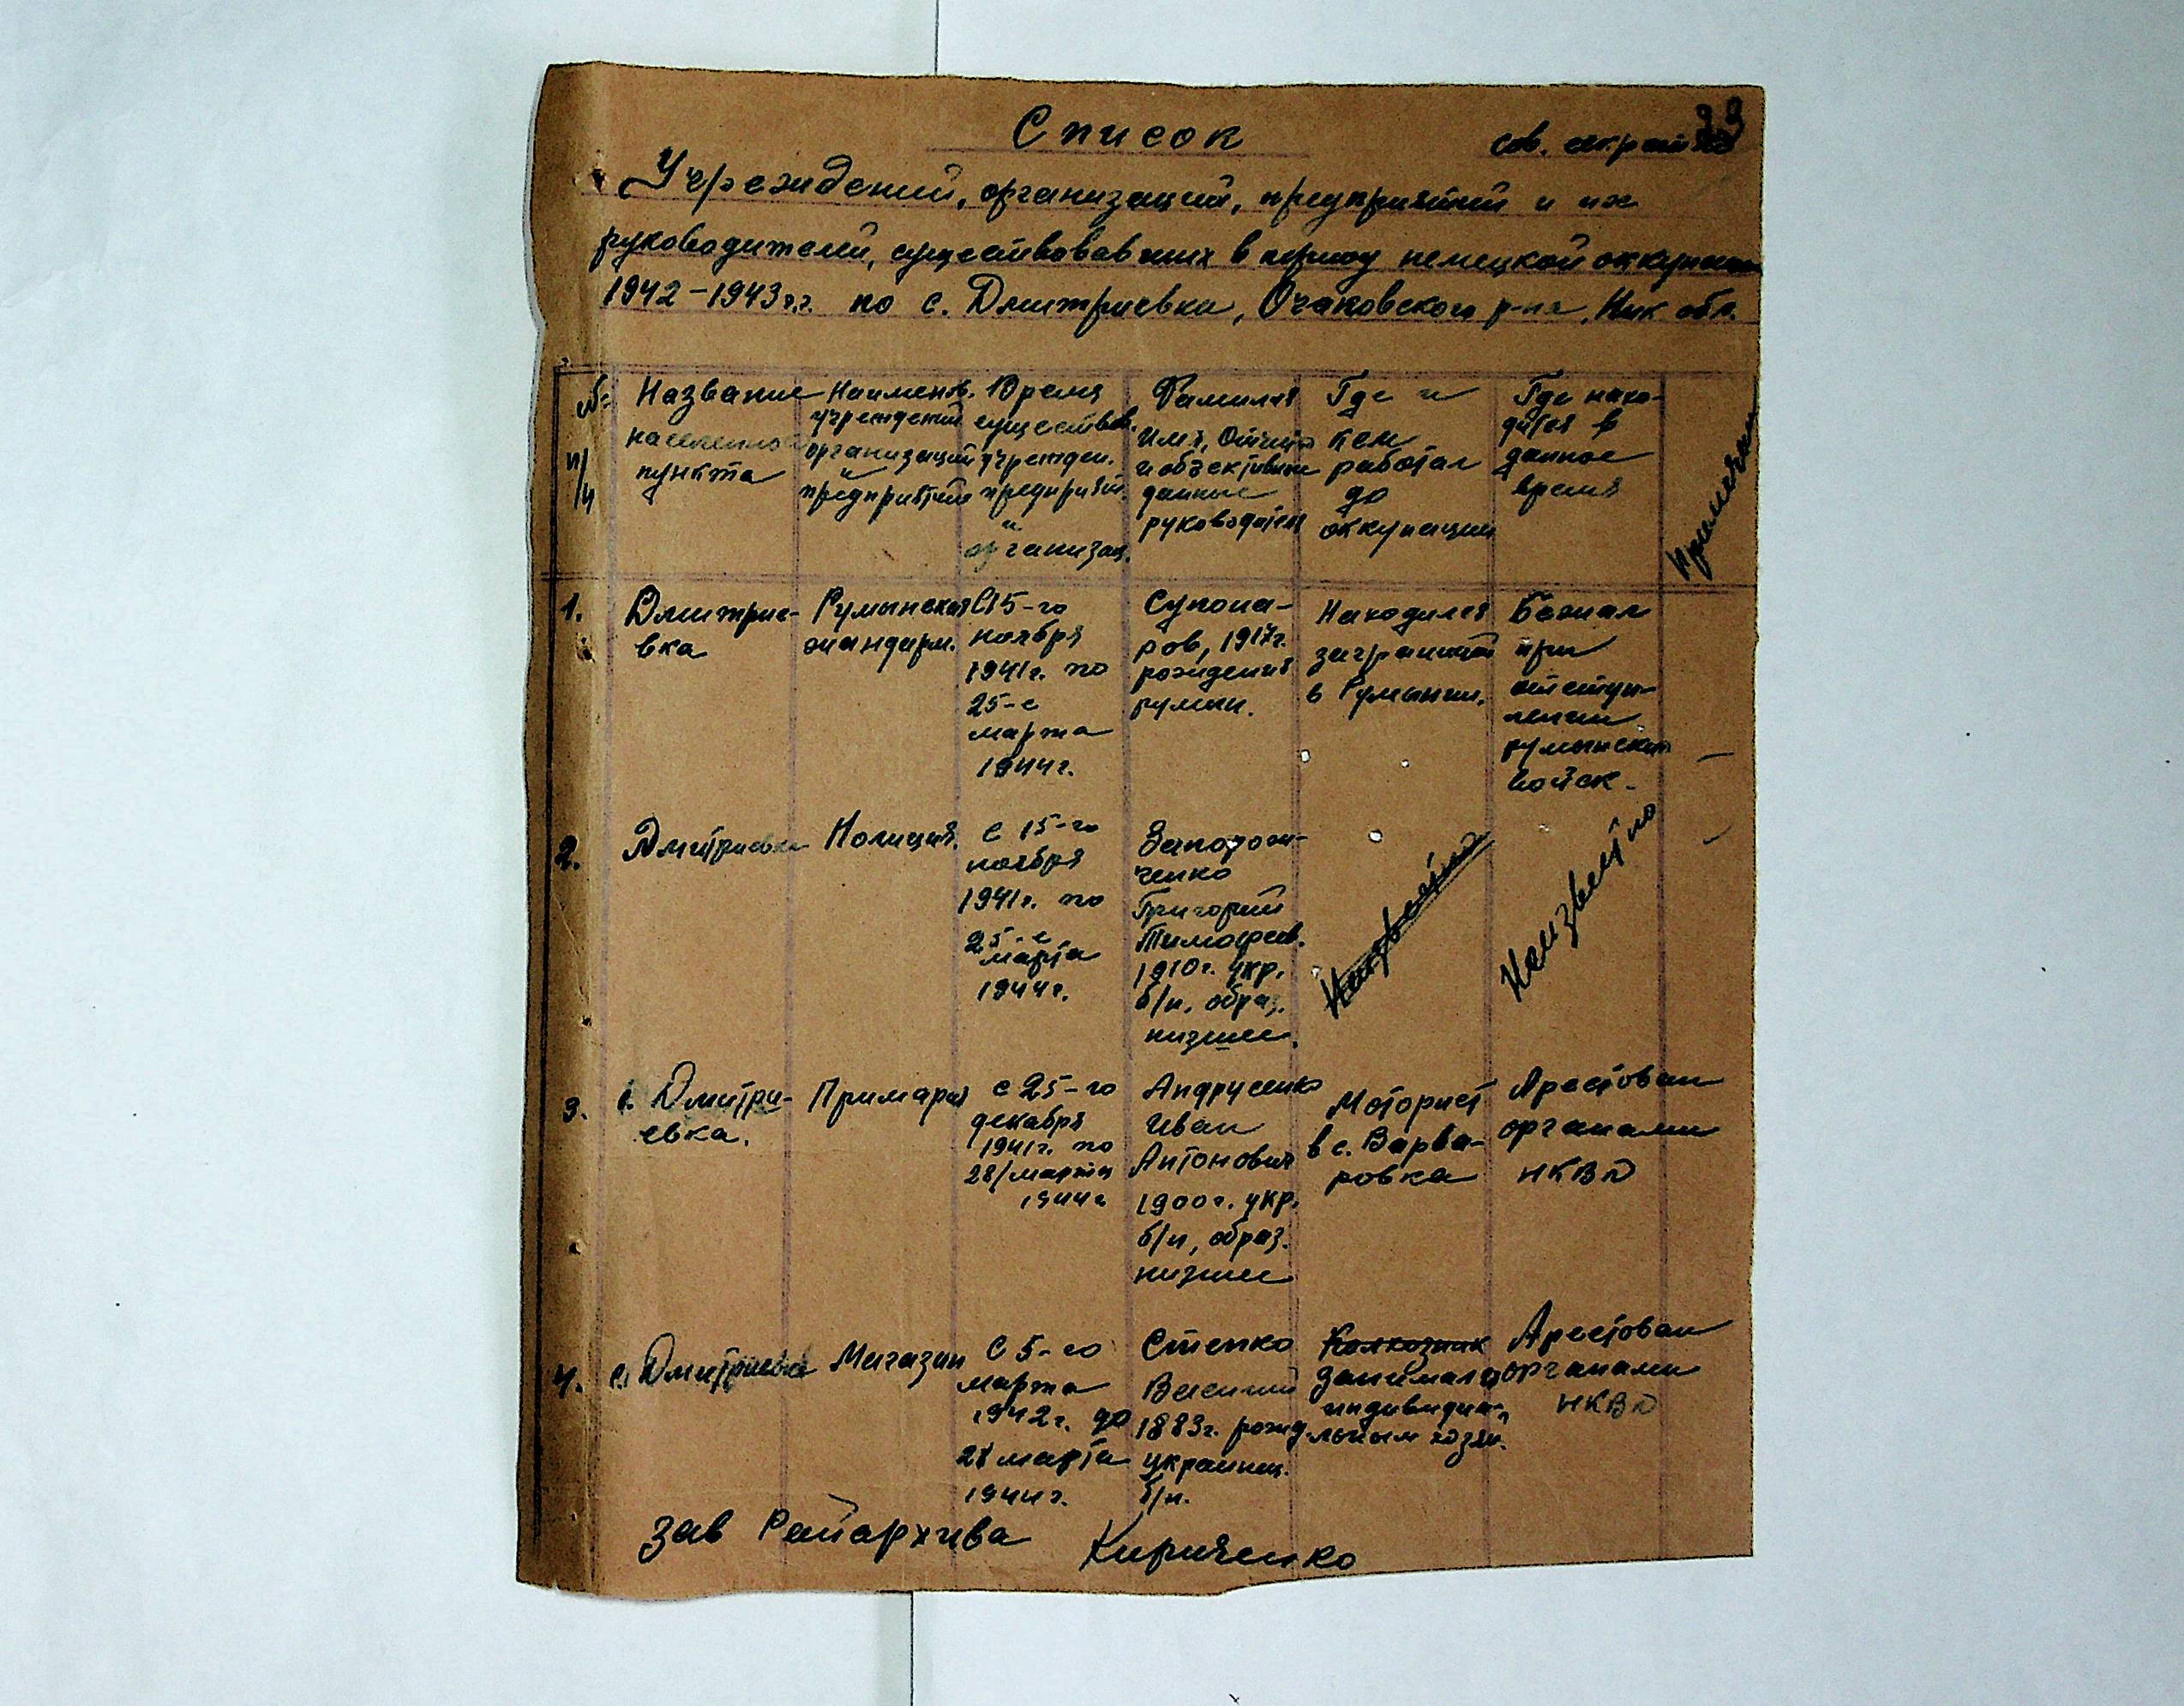 33
Список
сов. секретно
Учреждений, организаций, предприятий и их
руководителей, существовавших в период немецкой оккупации
1942-1943 г.г. по с. Дмитриевка, Очаковского р-на, Ник обл.
№ п/п
Название
населенного
пункта
Наименов.
учреждений
организаций
и
предприятий
Время
существов.
учрежден.
предприят.
и
организац.
Фамилия
имя, Отчество
и объективные
данные
руководителя
Где и
кем
работал
до
оккупации
Где нахо-
дится в
данное
время
Примечание
1.
Дмитрие-
вка
Румынская
жандарм.
С 15-го
ноября
1941г. по
25-е
марта
1944г.
Супона-
ров, 1917г.
рождения
румын.
Находился
заграницей
в Румынии.
Бежал
при
отступ-
лении
румынских
войск.
—
2.
Дмитриевка
Полиция.
с 15-го
ноября
1941г. по
25-е
марта
1944г.
Запорож-
ченко
Григорий
Тимофеев.
1910г. укр.
б/п. образ.
низшее.
Неизвестно
Неизвестно
3.
с. Дмитри-
евка.
Примария
с 25-го
декабря
1941г. по
28/марта
1944г
Андрусенко
Иван
Антонович
1900г. укр.
б/п, образ.
низшее
Моторист
в с. Варва-
ровка
Арестован
органами
НКВД
4.
с. Дмитриевка
Магазин
С 5-го
марта
1942г. до
28 марта
1944г.
Стенко
Василий
1883г. рожд.
украинец.
б/п.
Колхозник
занимался
индивидуа-
льным хозяй.
Арестован
органами
НКВД
зав Райархива Кириченко